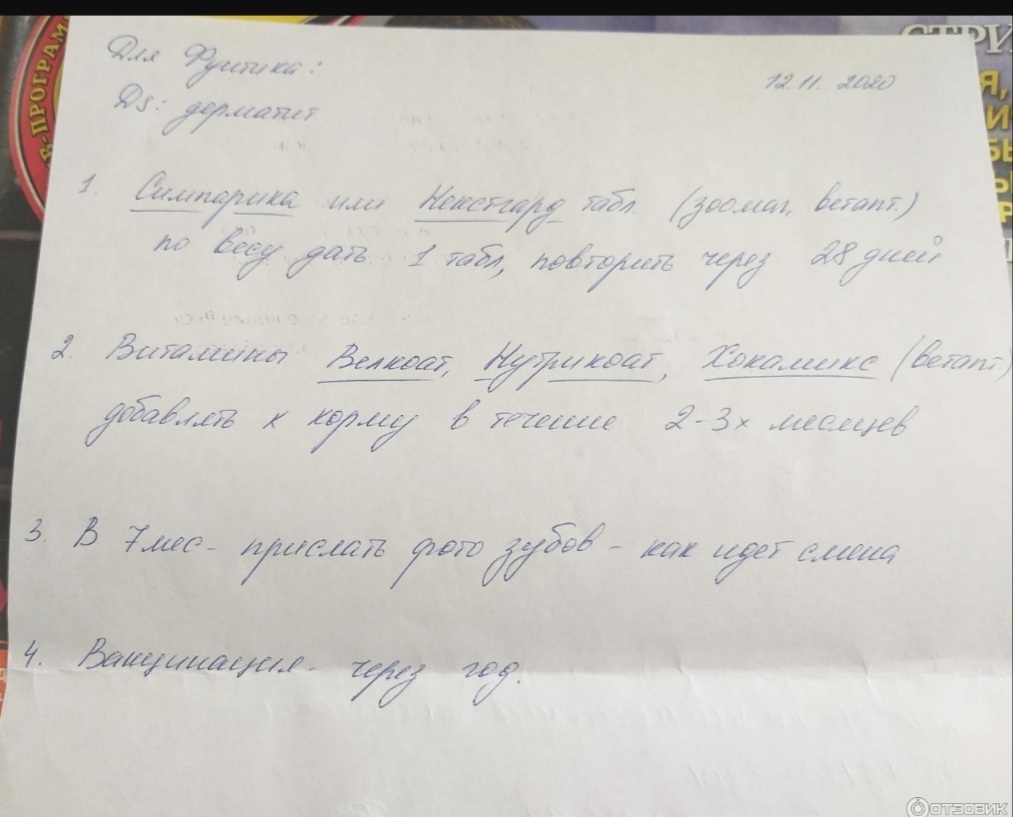 Для Фунтика:
12.11.2020
Ds: дерматит
1. Симпарика или Некстгард табл. (зоомаг, ветапт.)
по весу дать 1 табл, повторить через 28 дней
2. Витамины Велкоат, Нутрикоат, Хокамикс (ветапт.)
добавлять к корму в течение 2-3х месяцев
3. В 7мес- прислать фото зубов - как идет смена
4. Вакцинация- через год.
В-ПРОГРАМ
СТРИ
ОТЗОВИК